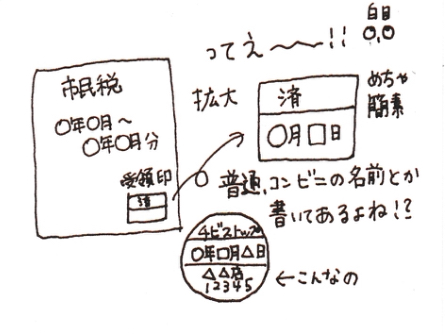 ってえ〜〜!!
白目
市民税
〇年〇月〜
〇年〇月分
受領印
済
拡大
済
〇月□日
めちゃ
簡素
普通、コンビニの名前とか
書いてあるよね!?
チビストップ
〇年□月△日
△△店
12345
←こんなの